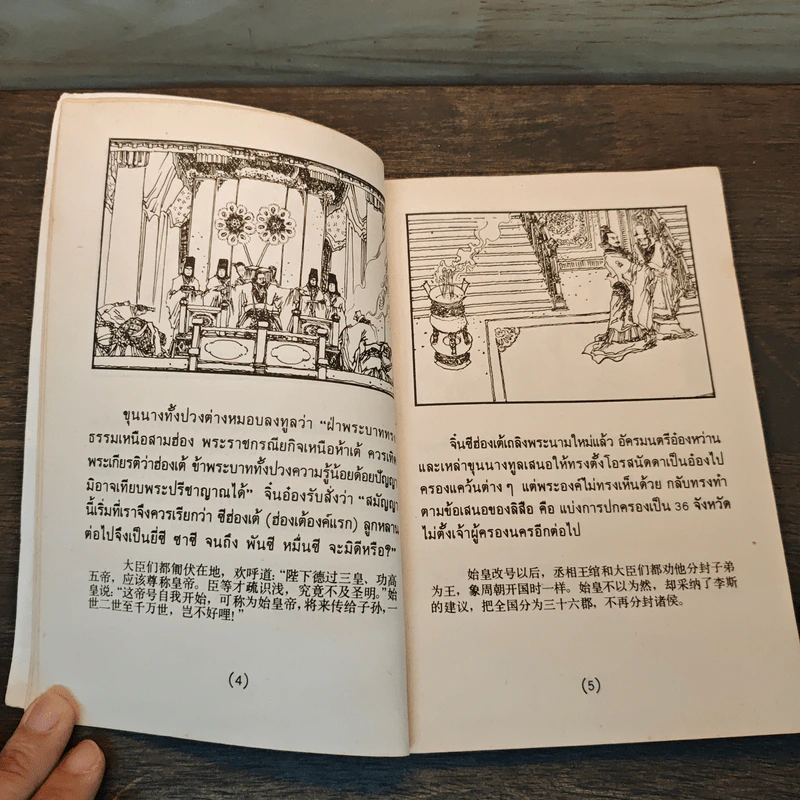 ขุนนางทั้งปวงต่างหมอบลงทูลว่า "ฝ่าพระบาททรง
ธรรมเหนือสามฮ่อง พระราชกรณียกิจเหนือห้าเต้ ควรเทิด
พระเกียรติว่าฮ่องเต้ ข้าพระบาททั้งปวงความรู้น้อยด้อยปัญญา
มิอาจเทียบพระปรีชาญาณได้" จิ๋นอ๋องรับสั่งว่า "สมัญญา
นี้เริ่มที่เราจึงควรเรียกว่า ซีฮ่องเต้ (ฮ่องเต้องค์แรก) ลูกหลาน
ต่อไปจึงเป็นยี่ซี ซาซี จนถึง พันซี หมื่นซี จะมิดีหรือ?"
大臣们都匍伏在地，欢呼道："陛下德过三皇，功高
五帝，应该尊称皇帝。臣等才疏识浅，究竟不及圣明。"始
皇说："这帝号自我开始，可称为始皇帝，将来传给子孙，一
世二世至千万世，岂不好哩！"
(4)
จิ๋นซีฮ่องเต้เถลิงพระนามใหม่แล้ว อัครมนตรีอ๋องหว่าน
และเหล่าขุนนางทูลเสนอให้ทรงตั้งโอรสนัดดาเป็นอ๋องไป
ครองแคว้นต่าง ๆ แต่พระองค์ไม่ทรงเห็นด้วย กลับทรงทำ
ตามข้อเสนอของลิสือ คือ แบ่งการปกครองเป็น 36 จังหวัด
ไม่ตั้งเจ้าผู้ครองนครอีกต่อไป
始皇改号以后，丞相王绾和大臣们都劝他分封子弟
为王，象周朝开国时一样。始皇不以为然，却采纳了李斯
的建议，把全国分为三十六郡，不再分封诸侯。
(5)